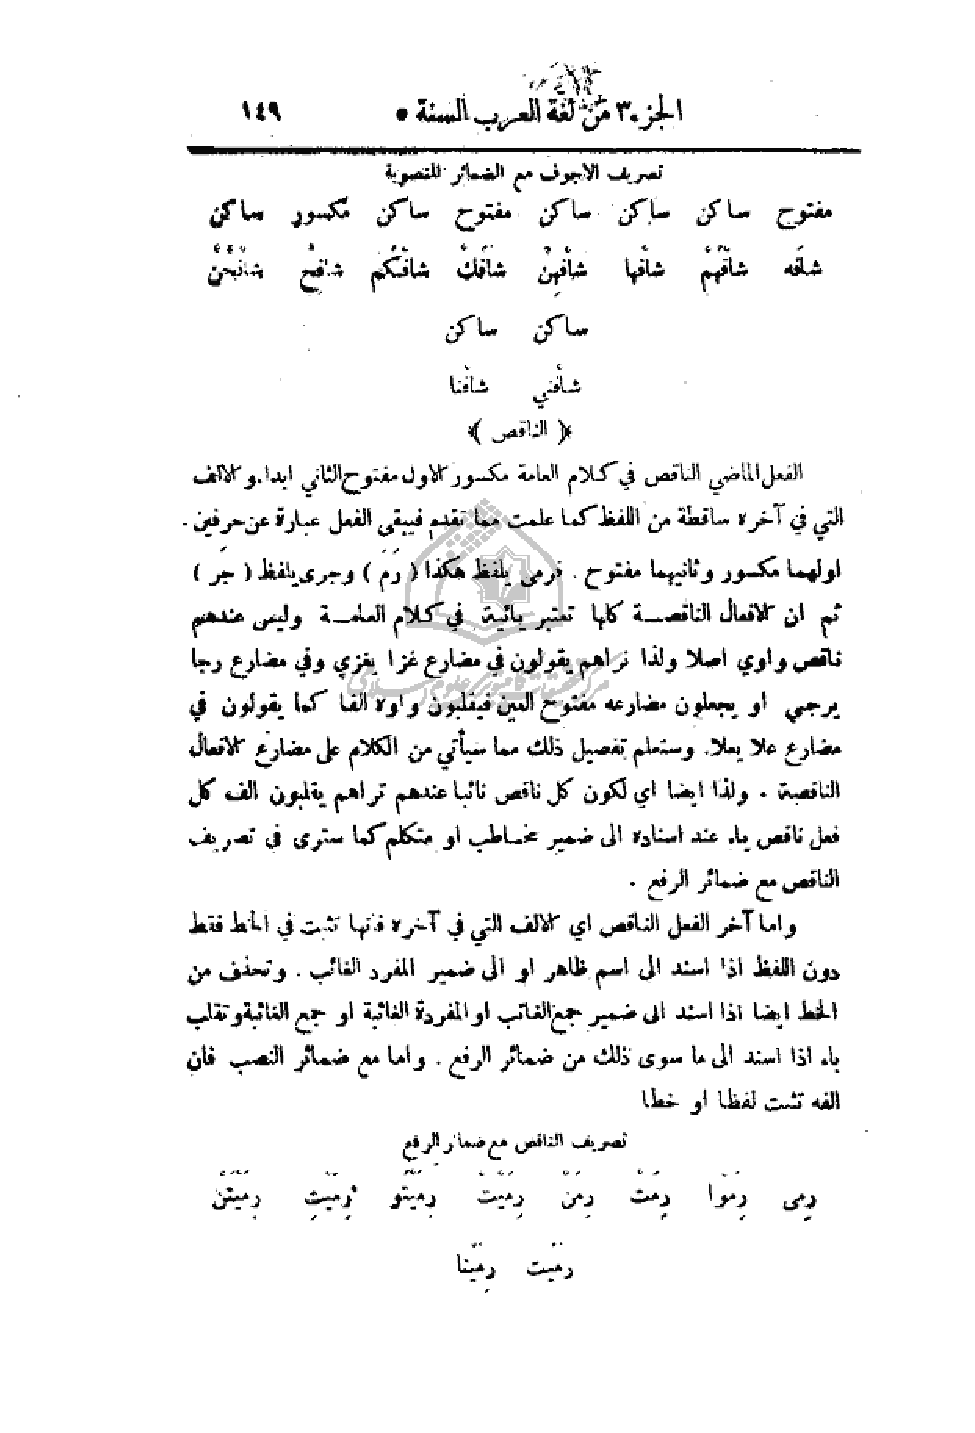 الجزء ٣ من لغة العرب السنة ٥ ١٤٩
تصريف الاجوف مع الضمائر المنصوبة
مفتوح ساكن ساكن ساكن مفتوح ساكن مكسور ساكن
شافَه شافْهُمْ شافْها شافْهِنْ شافَكْ شافْكُم شافِچ شافْچَنْ
ساكن ساكن
شافْني شافْنا
﴿ الناقص ﴾
الفعل الماضي الناقص في كلام العامة مكسور الاول مفتوح الثاني ابدا. والالف
التي في آخره ساقطة من اللفظ كما علمت مما تقدم فيبقى الفعل عبارة عن حرفين .
اولهما مكسور وثانيهما مفتوح . فرمى يلفظ هكذا ( رِمَ ) وجرى يلفظ ( جِرَ )
ثم ان الافعال الناقصة كلها تعتبر يائية في كلام العامة وليس عندهم
ناقص واوي اصلا ولذا نراهم يقولون في مضارع غزا يغزي وفي مضارع رجا
يرجي او يجعلون مضارعه مفتوح العين فيقلبون واوه الفا كما يقولون في
مضارع علا يعلا. وستعلم تفصيل ذلك مما سيأتي من الكلام على مضارع الافعال
الناقصة . ولذا ايضا اي لكون كل ناقص يائيا عندهم تراهم يقلبون الف كل
فعل ناقص ياء عند اسناده الى ضمير مخاطب او متكلم كما سترى في تصريف
الناقص مع ضمائر الرفع .
واما آخر الفعل الناقص اي الالف التي في آخره فانها تثبت في الخط فقط
دون اللفظ اذا اسند الى اسم ظاهر او الى ضمير المفرد الغائب . وتحذف من
الخط ايضا اذا اسند الى ضمير جمع الغائب او المفردة الغائبة او جمع الغائبة وتقلب
ياء اذا اسند الى ما سوى ذلك من ضمائر الرفع . واما مع ضمائر النصب فان
الفه تثبت لفظا او خطا
تصريف الناقص مع ضمائر الرفع
رِمى رِمَوْا رِمَتْ رِمَنْ رِمَيْتْ رِمَيْتُو رِمَيْتِ رِمَيْتَنْ
رِمَيت رِمَيْنا